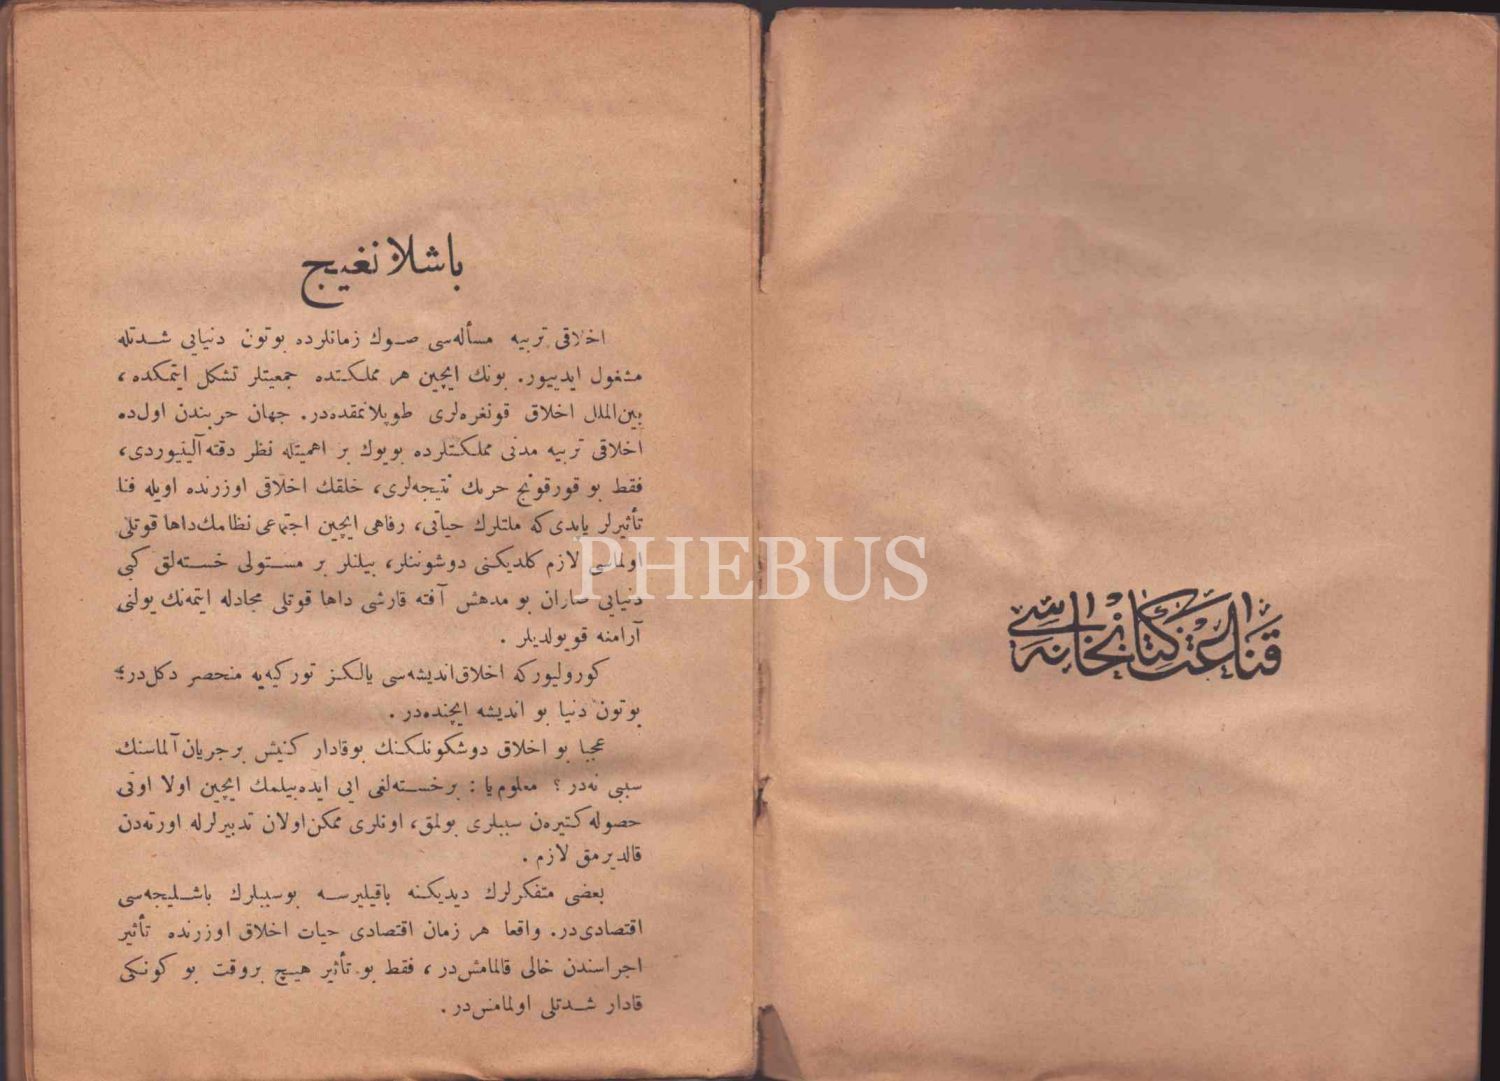 قناعت كتابخانه‌سی
باشلانغیج
اخلاقی تربیه مسأله‌سی صوك زمانلرده بوتون دنیایی شدتله
مشغول ایدییور. بونك ایچین هر مملكتده جمعیتلر تشكل ایتمكده،
بین‌الملل اخلاق قونغره‌لری طوپلانمقده‌در. جهان حربندن اول‌ده
اخلاقی تربیه مدنی مملكتلرده بویوك بر اهمیتله نظر دقته آلینیوردی،
فقط بو قورقونج حربك نتیجه‌لری، خلقك اخلاقی اوزرنده اویله فنا
تأثیرلر یاپدی‌كه ملتلرك حیاتی، رفاهی ایچین اجتماعی نظامك‌داها قوتلی
اولماسی لازم كلدیكنی دوشوننلر، بیلنلر بر مستولی خسته‌لق كبی
دنیایی صاران بو مدهش آفته قارشی داها قوتلی مجادله ایتمه‌نك یولنی
آرامنه قویولدیلر.
كورولیوركه اخلاق‌اندیشه‌سی یالكز توركیه‌یه منحصر دكل‌در؛
بوتون دنیا بو اندیشه ایچنده‌در.
عجبا بو اخلاق دوشكونلكنك بوقادار كنیش برجریان آلماسنك
سببی نه‌در؟ معلوم‌یا: برخسته‌لغی ایی ایده‌بیلمك ایچین اولا اونی
حصوله كتیره‌ن سببلری بولمق، اونلری ممكن‌اولان تدبیرلرله اورته‌دن
قالدیرمق لازم.
بعضی متفكرلرك دیدیكنه باقیلیرسه بوسببلرك باشلیجه‌سی
اقتصادی‌در. واقعا هر زمان اقتصادی حیات اخلاق اوزرنده تأثیر
اجراسندن خالی قالمامش‌در، فقط بو تأثیر هیچ بروقت بو كونكی
قادار شدتلی اولمامش‌در.
PHEBUS